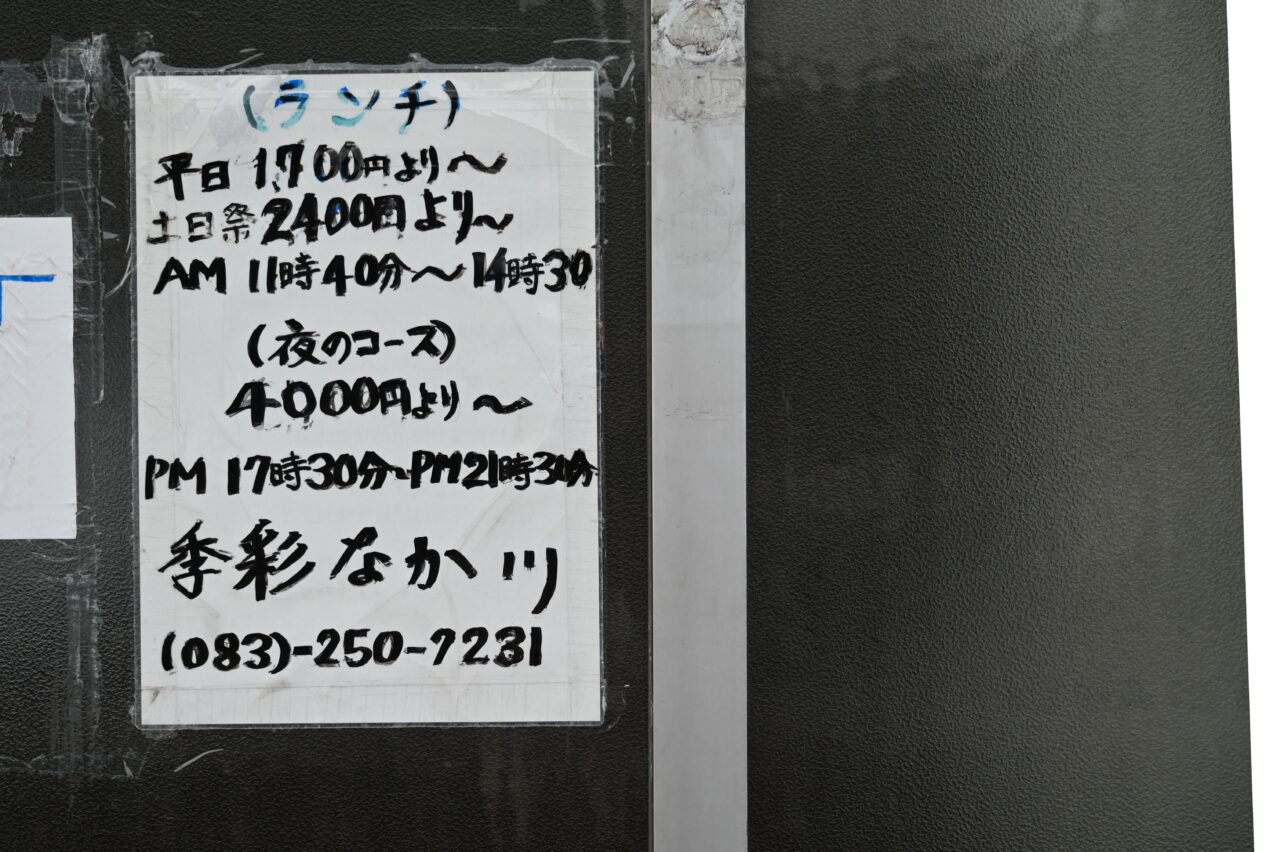 (ランチ)
平日 1,700円より〜
土日祭 2400円より〜
AM 11時40分〜14時30
(夜のコース)
4000円より〜
PM 17時30分〜PM21時30分
季彩なか川
(083)-250-7231